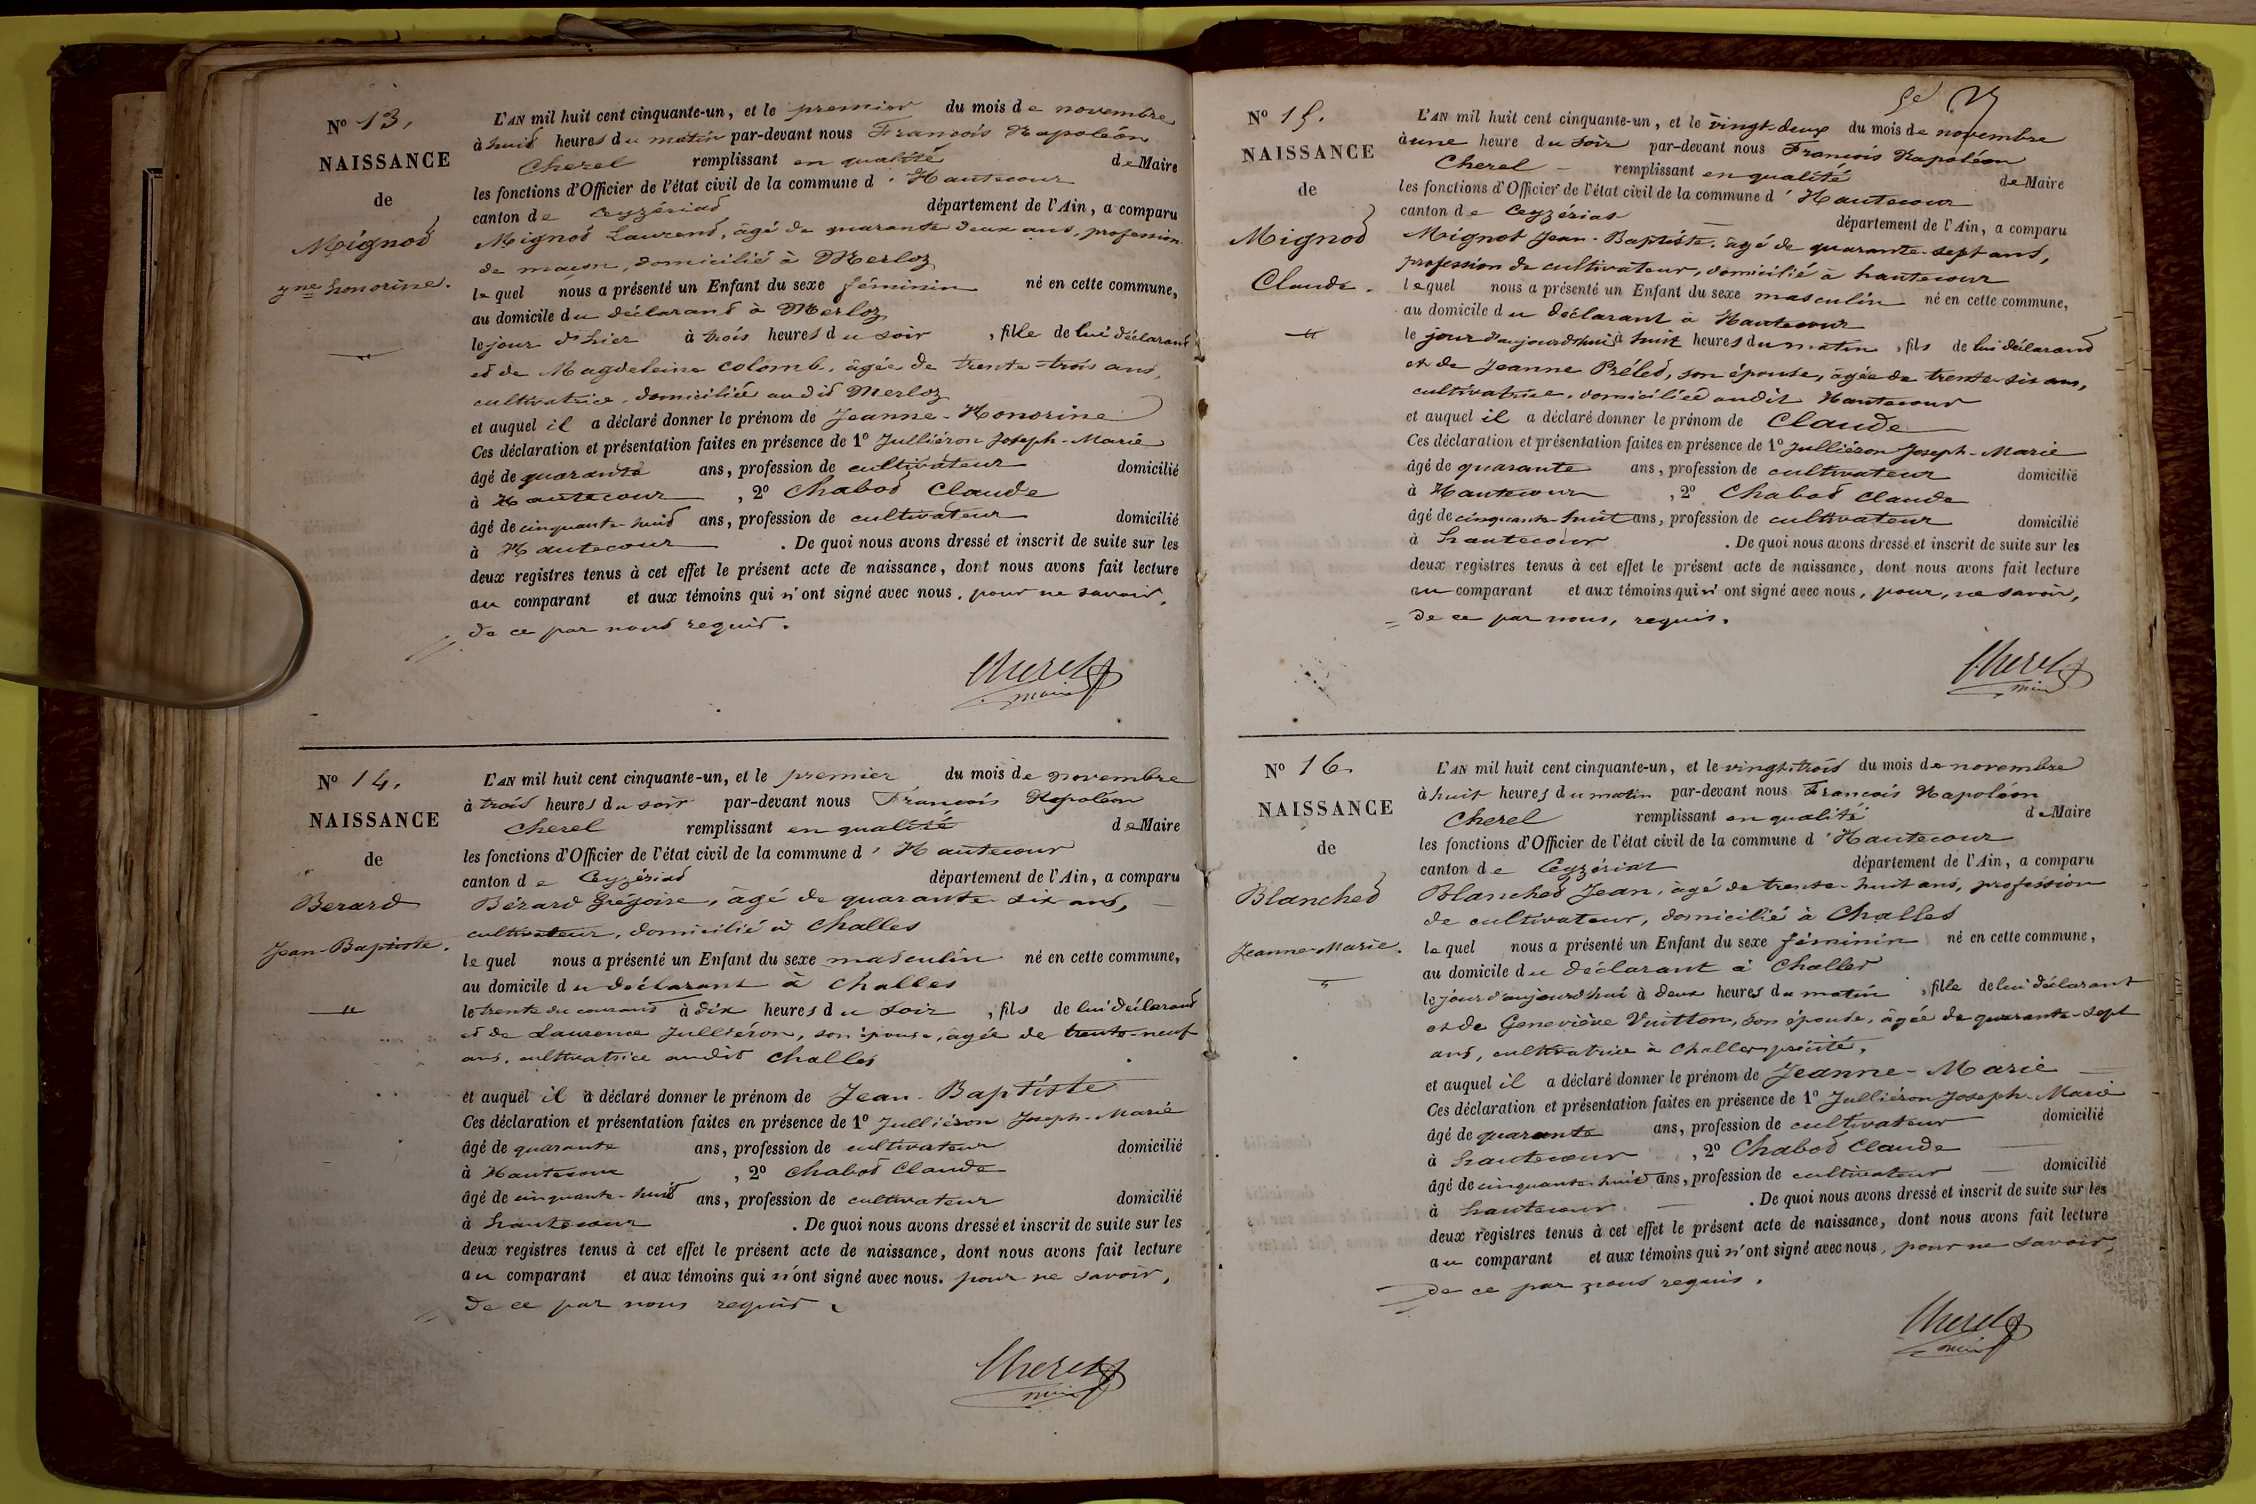 N° 13.
NAISSANCE
de
Mignod
Jne honorine.
L'AN mil huit cent cinquante-un, et le premier du mois de novembre
à huid heures du matin par-devant nous François Napoléon
Cherel remplissant en qualité de Maire
les fonctions d'Officier de l'état civil de la commune d'Hautecour
canton de Ceyzériad département de l'Ain, a comparu
Mignod Laurend, âgé de quarante deux ans, profession
de maçon, domicilié à Merloz
lequel nous a présenté un Enfant du sexe féminin né en cette commune,
au domicile du déclarand à Merloz
le jour d'hier à trois heures du soir, fille de lui déclarand
ed de Magdeleine Colomb, âgée de trente-trois ans,
cultivatrice, domiciliée audid Merloz
et auquel il a déclaré donner le prénom de Jeanne-Honorine
Ces déclaration et présentation faites en présence de 1° Julliéron Joseph-Marie
âgé de quarante ans, profession de cultivateur domicilié
à Hautecour, 2° Chabod Claude
âgé de cinquante-huid ans, profession de cultivateur domicilié
à Hautecour. De quoi nous avons dressé et inscrit de suite sur les
deux registres tenus à cet effet le présent acte de naissance, dont nous avons fait lecture
au comparant et aux témoins qui n'ont signé avec nous, pour ne savoir,
de ce par nous requis.
Cherel
maire
N° 14.
NAISSANCE
de
Berard
Jean-Baptiste.
L'AN mil huit cent cinquante-un, et le premier du mois de novembre
à trois heures du soir par-devant nous François Napoléon
Cherel remplissant en qualité de Maire
les fonctions d'Officier de l'état civil de la commune d'Hautecour
canton de Ceyzériad département de l'Ain, a comparu
Bérard Grégoire, âgé de quarante-six ans,
cultivateur, domicilié à Challes
lequel nous a présenté un Enfant du sexe masculin né en cette commune,
au domicile du déclarant à Challes
le trente du courant à dix heures du soir, fils de lui déclarand
ed de Laurence Julliéron, son épouse, âgée de trente-neuf
ans, cultivatrice audit Challes
et auquel il a déclaré donner le prénom de Jean-Baptiste
Ces déclaration et présentation faites en présence de 1° Julliéron Joseph-Marie
âgé de quarante ans, profession de cultivateur domicilié
à Hautecour, 2° Chabod Claude
âgé de cinquante-huid ans, profession de cultivateur domicilié
à hautecour. De quoi nous avons dressé et inscrit de suite sur les
deux registres tenus à cet effet le présent acte de naissance, dont nous avons fait lecture
au comparant et aux témoins qui n'ont signé avec nous. pour ne savoir,
de ce par nous requis.
Cherel
maire
N° 15.
NAISSANCE
de
Mignod
Claude.
L'AN mil huit cent cinquante-un, et le vingt-deux du mois de novembre
à une heure du soir par-devant nous François Napoléon
Cherel remplissant en qualité de Maire
les fonctions d'Officier de l'état civil de la commune d'Hautecour
canton de Ceyzériat département de l'Ain, a comparu
Mignot Jean-Baptiste. âgé de quarante-sept ans,
profession de cultivateur, domicilié à hautecour
lequel nous a présenté un Enfant du sexe masculin né en cette commune,
au domicile du déclarant à Hautecour
le jour d'aujourd'hui à huit heures du matin, fils de lui déclarand
et de Jeanne Préled, son épouse, âgée de trente-six ans,
cultivatrice, domiciliée audit Hautecour
et auquel il a déclaré donner le prénom de Claude
Ces déclaration et présentation faites en présence de 1° Julliéron Joseph-Marie
âgé de quarante ans, profession de cultivateur domicilié
à Hautecour, 2° Chabod Claude
âgé de cinquante-huit ans, profession de cultivateur domicilié
à hautecour. De quoi nous avons dressé et inscrit de suite sur les
deux registres tenus à cet effet le présent acte de naissance, dont nous avons fait lecture
au comparant et aux témoins qui n'ont signé avec nous, pour, ne savoir,
de ce par nous, requis.
Cherel
maire
N° 16.
NAISSANCE
de
Blanched
Jeanne-Marie.
L'AN mil huit cent cinquante-un, et le vingt-trois du mois de novembre
à huit heures du matin par-devant nous François Napoléon
Cherel remplissant en qualité de Maire
les fonctions d'Officier de l'état civil de la commune d'Hautecour
canton de Ceyzériat département de l'Ain, a comparu
Blanched Jean, âgé de trente-huit ans, profession
de cultivateur, domicilié à Challes
lequel nous a présenté un Enfant du sexe féminin né en cette commune,
au domicile du déclarant à Challes
le jour d'aujourd'hui à deux heures du matin, fille de lui déclarant
et de Geneviève Vuitton, son épouse, âgée de quarante-sept
ans, cultivatrice à Challes précité.
et auquel il a déclaré donner le prénom de Jeanne-Marie
Ces déclaration et présentation faites en présence de 1° Julliéron Joseph-Marie
âgé de quarante ans, profession de cultivateur domicilié
à hautecour, 2° Chabod Claude
âgé de cinquante-huid ans, profession de cultivateur domicilié
à hautecour. De quoi nous avons dressé et inscrit de suite sur les
deux registres tenus à cet effet le présent acte de naissance, dont nous avons fait lecture
au comparant et aux témoins qui n'ont signé avec nous, pour ne savoir,
de ce par nous requis.
Cherel
maire